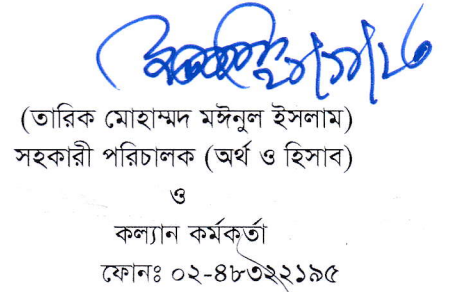 (তারিক মোহাম্মদ মঈনুল ইসলাম)
সহকারী পরিচালক (অর্থ ও হিসাব)
ও
কল্যান কর্মকর্তা
ফোনঃ ০২-৪৮৩২২১৯৫